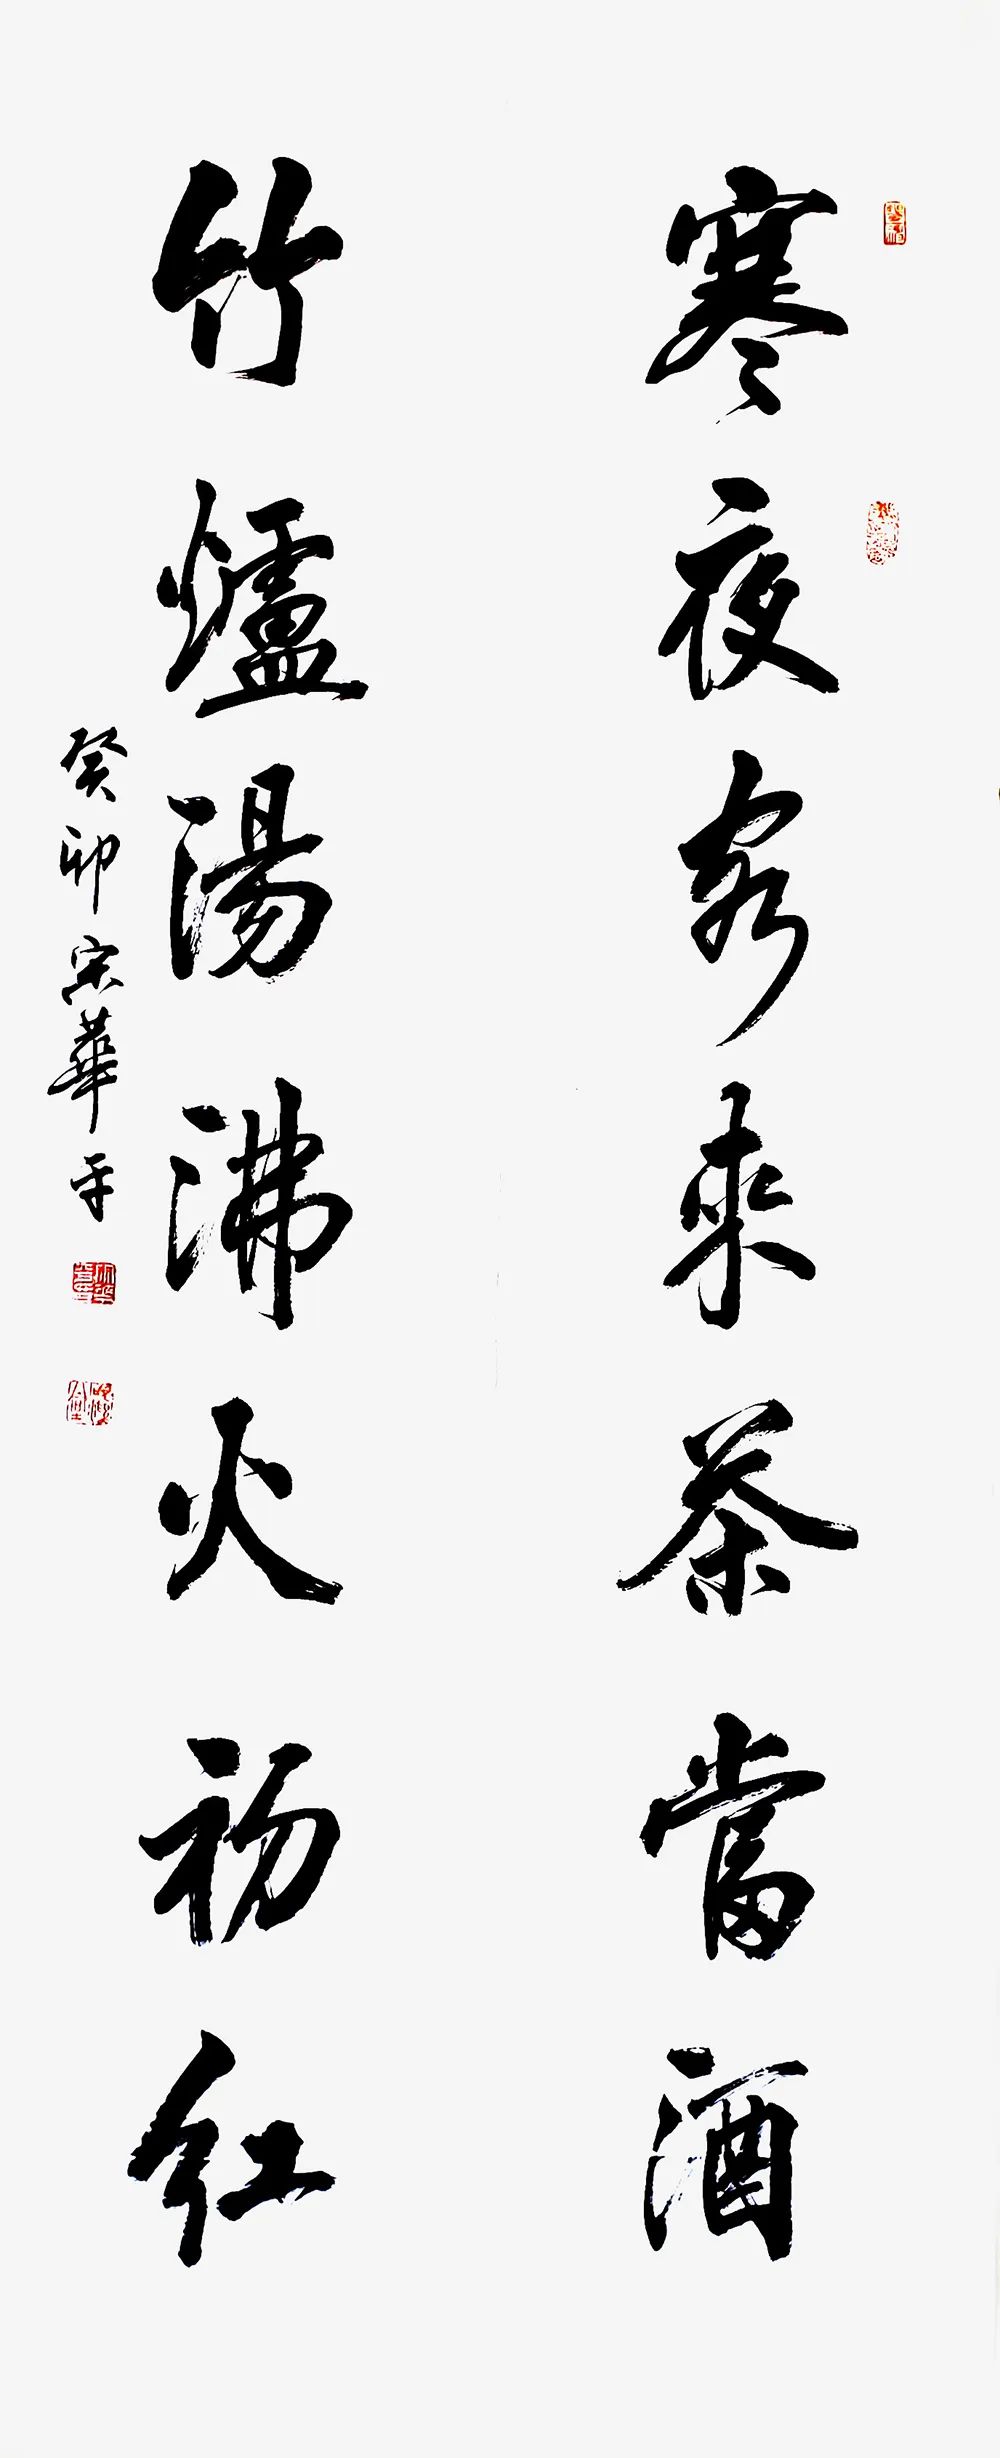 寒夜客來茶當酒
竹爐湯沸火初红
癸卯宗華平